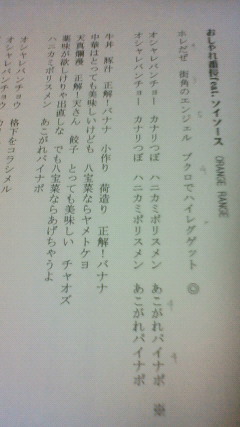 おしゃれ番長feat.ソイソース
ORANGE RANGE
ホレだぜ 街角のエンジェル ブクロでハイレグゲット ◎
オシャレバンチョー カナリつぼ ハニカミポリスメン あこがれパイナポ ※
オシャレバンチョー カナリつぼ ハニカミポリスメン あこがれパイナポ
牛丼 豚汁 正解!バナナ 小作り 荷造り 正解!バナナ
中華はとっても美味しいけども 八宝菜ならヤメトケヨ
天真爛漫 正解!天さん 餃子 とっても美味しい チャオズ
薬味が欲しけりゃ出直しな でも八宝菜ならあげちゃうよ
ハニカミポリスメン あこがれパイナポ
オシャレバンチョウ 格下をコラシメル
オシャレバンチョウ